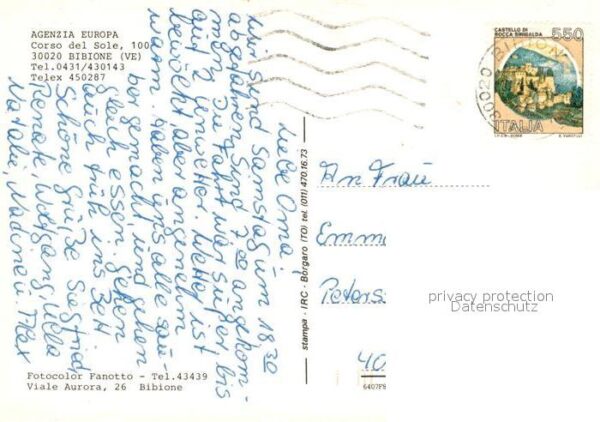 AGENZIA EUROPA
Corso del Sole, 100
30020 BIBIONE (VE)
Tel.0431/430143
Telex 450287
Liebe Oma,
wir sind Samstag um 18 30
abgefahren, sind 7 00 angekom-
men. Die Fahrt war super bis
auf 2 Gewitter. Wetter ist
bewölkt aber angenehm
warm, haben uns alle sau-
ber gemacht und gehen
gleich essen, gehen
auch früh ins Bett
Schöne Grüße Siegfried
Renate Wolfgang, Ulla
Natali, Nadine u. Max
Fotocolor Fanotto - Tel.43439
Viale Aurora, 26 Bibione
stampa - IRC - Borgaro (TO) tel. (011) 470.16.73
CASTELLO DI
ROCCA SINIBALDA
550
ITALIA
30020 BIBIONE
An Frau
Emm
Peters
40
privacy protection
Datenschutz